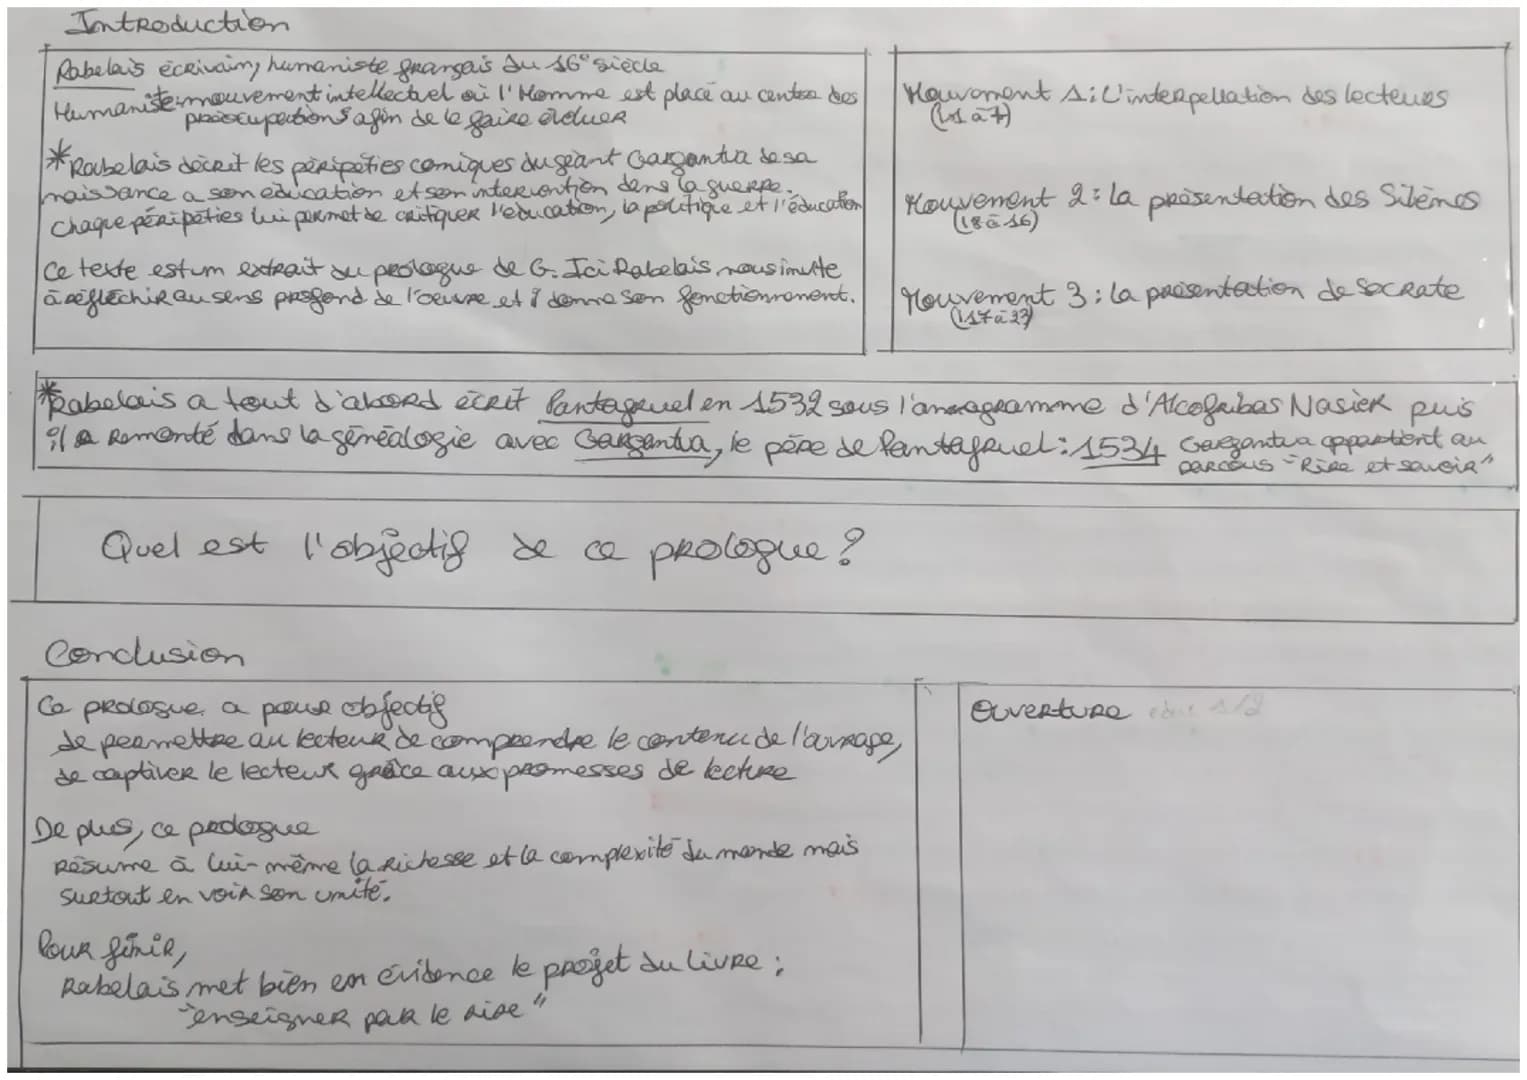 Introduction
Rabelais écrivain, humaniste français du 16e siècle
Humaniste: mouvement intellectuel où l'Homme est placé au centre des
préoccupations afin de le faire évoluer
*Rabelais décrit les péripéties comiques du géant Gargantua de sa
naissance a son éducation et son intervention dans la guerre.
Chaque péripéties lui permet de critiquer l'éducation, la politique et l'éducation
Ce texte est un extrait du prologue de G. Ici Rabelais nous invite
à réfléchir au sens profond de l'oeuvre et y donne son fonctionnement.
Mouvement 1: L'interpellation des lecteurs
(l1 à 7)
Mouvement 2: la présentation des Silènes
(l8 à 16)
Mouvement 3: la présentation de Socrate
(l17 à 23)
*Rabelais a tout d'abord écrit Pantagruel en 1532 sous l'anagramme d'Alcofribas Nasier puis
il a remonté dans la généalogie avec Gargantua, le père de Pantagruel: 1534 Gargantua appartient au
parcours "Rire et savoir"
Quel est l'objectif de ce prologue?
Conclusion
Ce prologue a pour objectif
de permettre au lecteur de comprendre le contenu de l'ouvrage,
de captiver le lecteur grâce aux promesses de lecture
De plus, ce prologue
résume à lui-même la richesse et la complexité du monde mais
surtout en voir son unité.
Pour finir,
Rabelais met bien en évidence le projet du livre:
"enseigner par le rire"
Ouverture